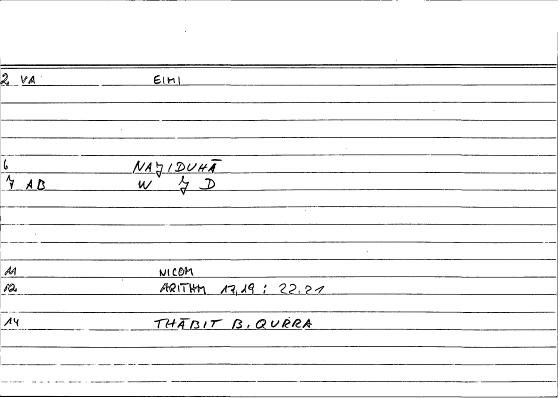 2 VA EIMI
6 NAJIDUHĀ
7 AB W J D
11 NICOM
12 ARITHM 17,19 : 22.21
14 THĀBIT B. QURRA